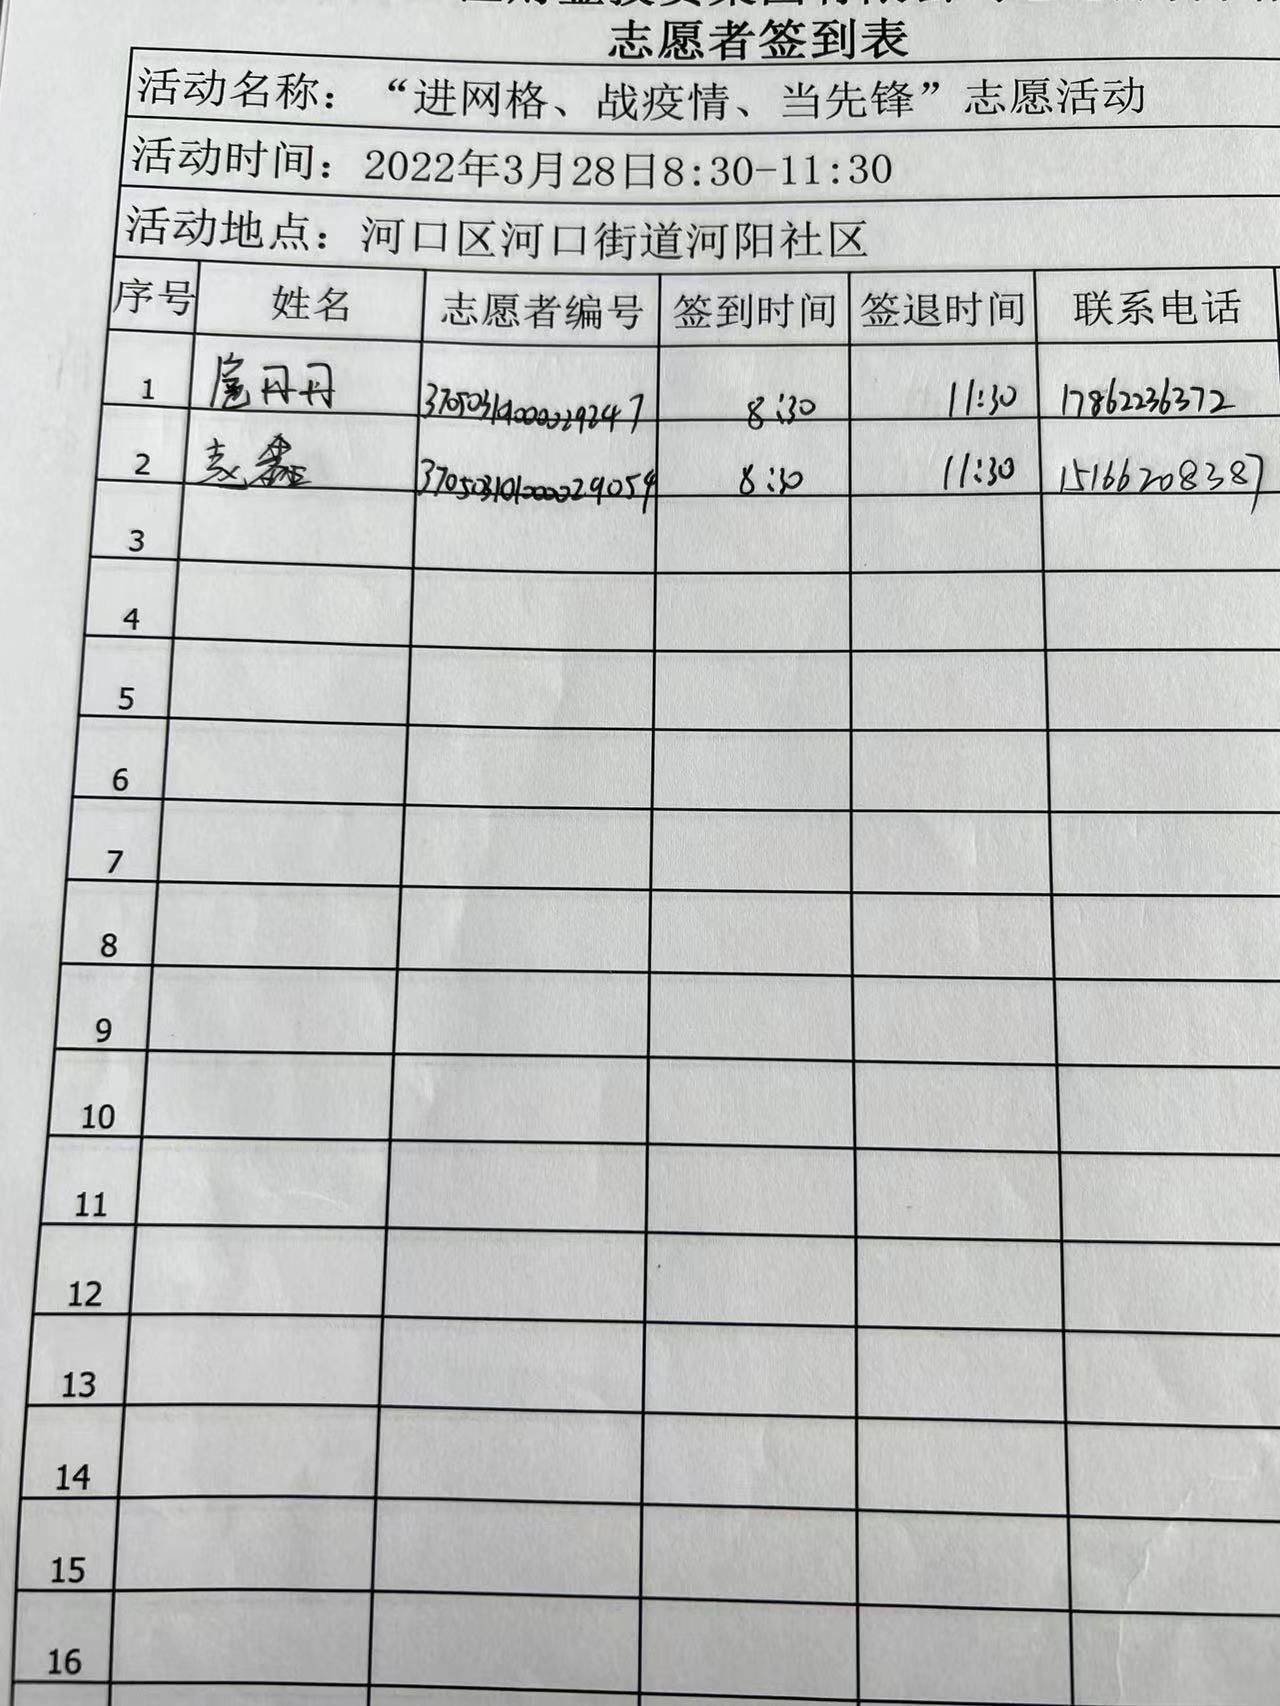 志愿者签到表
活动名称：“进网格、战疫情、当先锋”志愿活动
活动时间：2022年3月28日8:30-11:30
活动地点：河口区河口街道河阳社区
序号 姓名 志愿者编号 签到时间 签退时间 联系电话
1 扈丹丹 8:30 11:30 17862236372
2 赵鑫 8:30 11:30 15166208387
3
4
5
6
7
8
9
10
11
12
13
14
15
16